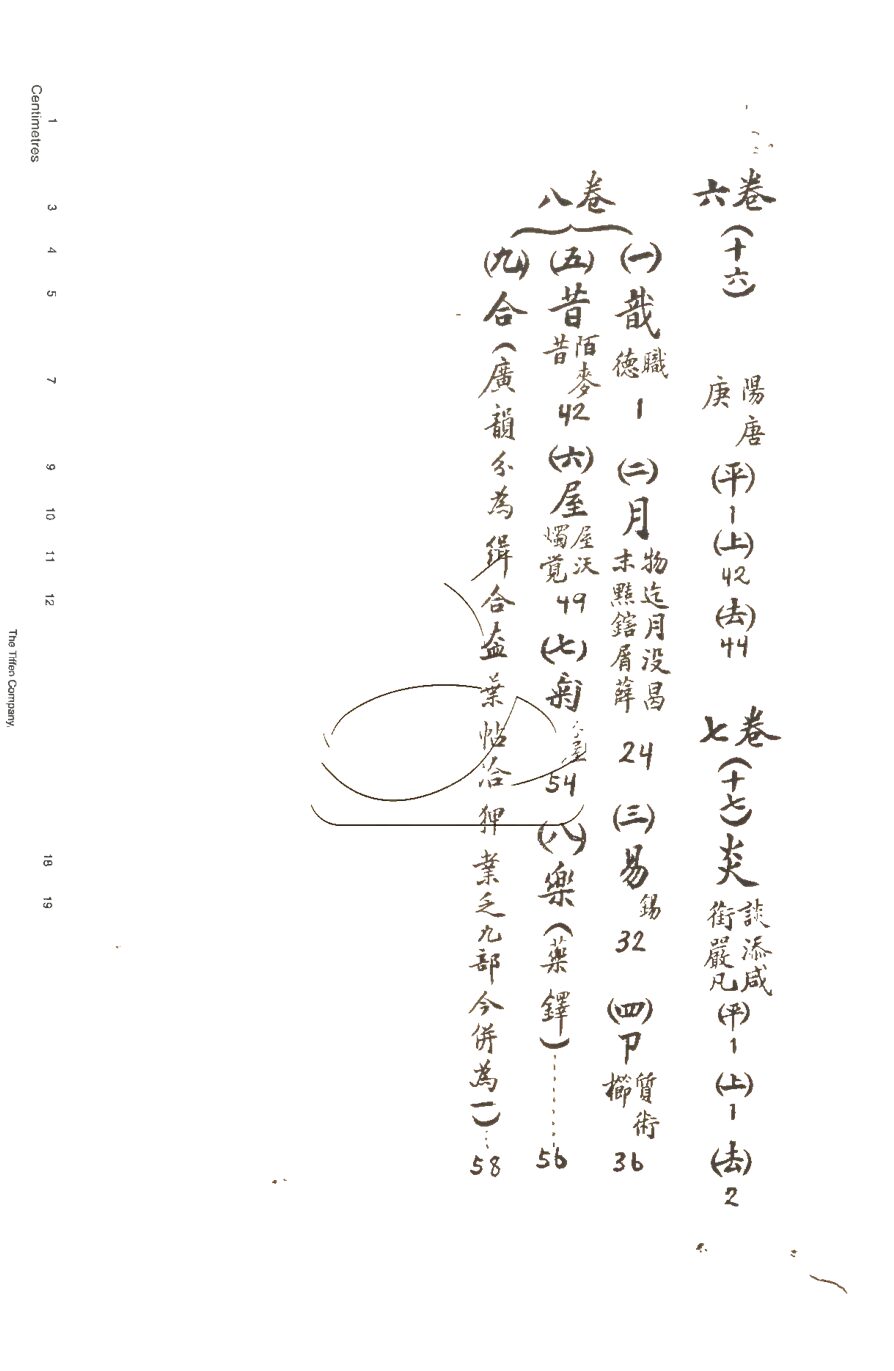 六卷 (十六) 陽唐庚 (平) 1 (上) 42 (去) 44 七卷 (十七) 炎 談添咸銜嚴凡 (平) 1 (上) 1 (去) 2
八卷
(一) 戠 職德 1 (二) 月 物迄月没曷末黠鎋屑薛 24 (三) 易 錫 32 (四) 卪 質術櫛 36
(五) 昔 陌麥昔 42 (六) 屋 屋沃燭覚 49 (七) 54 (八) 樂 (藥鐸) ......... 56
(九) 合 (廣韻分為緝合盍葉帖洽狎業乏九部今併為一) ... 58
Centimetres 1 3 4 5 7 9 10 11 12 18 19
The Tiffen Company,